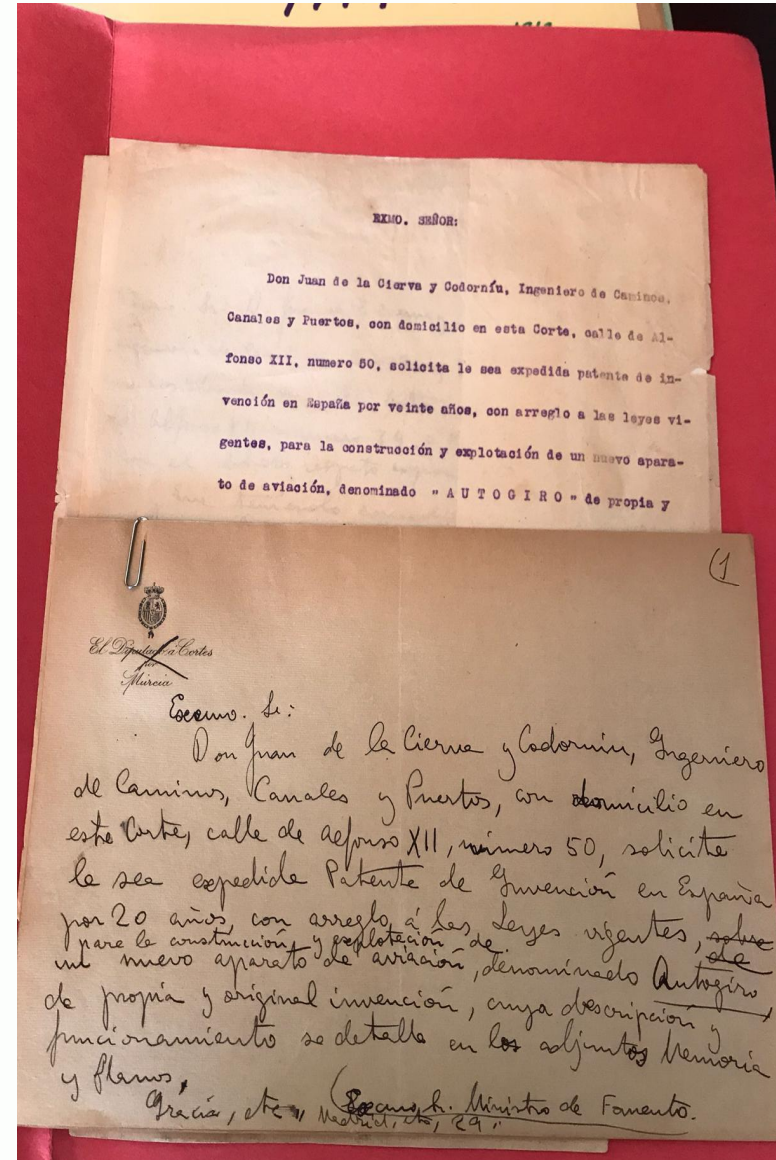 EXMO. SEÑOR:
Don Juan de la Cierva y Codorníu, Ingeniero de Caminos,
Canales y Puertos, con domicilio en esta Corte, calle de Al-
fonso XII, numero 50, solicita le sea expedida patente de in-
vención en España por veinte años, con arreglo a las leyes vi-
gentes, para la construcción y explotación de un nuevo apara-
to de aviación, denominado " A U T O G I R O " de propia y
(1
El Diputado á Cortes
por
Murcia
Excmo. Sr:
Don Juan de la Cierva y Codorniu, Ingeniero
de Caminos, Canales y Puertos, con domicilio en
esta Corte, calle de Alfonso XII, número 50, solicita
le sea expedida Patente de Invención en España
por 20 años, con arreglo á las Leyes vigentes, sobre
para la construcción y explotación de de
un nuevo aparato de aviación, denominado Autogiro,
de propia y original invención, cuya descripción y
funcionamiento se detalla en los adjuntos Memoria
y Planos,
Gracia, etc, Madrid, etc, 29, Excmo Sr. Ministro de Fomento.